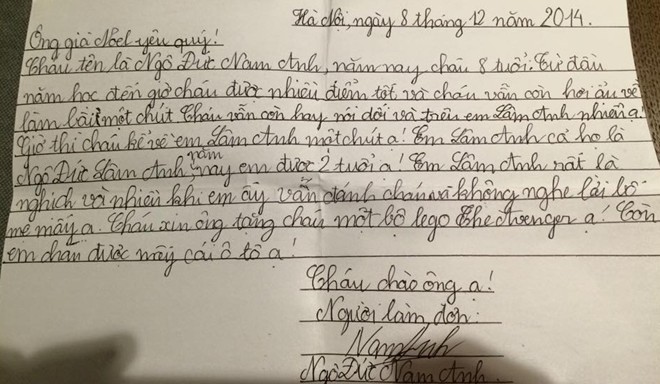 Hà Nội, ngày 8 tháng 12 năm 2014.
Ông già Noel yêu quý!
Cháu tên là Ngô Đức Nam Anh, năm nay cháu 8 tuổi. Từ đầu
năm học đến giờ cháu được nhiều điểm tốt và cháu vẫn còn hơi ẩu về
làm bài một chút. Cháu vẫn còn hay nói dối và trêu em Lâm Anh nhiều ạ.
Giờ thì cháu kể về em Lâm Anh một chút ạ! Em Lâm Anh cả họ là
Ngô Đức Lâm Anh, năm nay em được 2 tuổi ạ! Em Lâm Anh rất là
nghịch và nhiều khi em ấy vẫn đánh cháu và không nghe lời bố
mẹ mấy ạ. Cháu xin ông tặng cháu một bộ lego The Avenger ạ! Còn
em cháu được mấy cái ô tô ạ!
Cháu chào ông ạ!
Người làm đơn:
NamAnh
Ngô Đức Nam Anh.